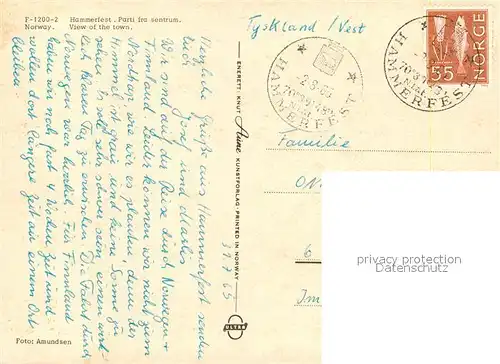 F-1200-2 Hammerfest. Parti fra sentrum.
Norway. View of the town.
Herzliche Grüße aus Hammerfest senden
Euch Josef und Maria
Wir sind auf der Reise durch Norwegen +
Finnland. Leider können wir nicht zum
Nordkap wie wir es planten, denn der
Himmel ist grau und keine Sonne zu
sehen. Es soll sehr schwer sein einen wirk-
lich blauen Tag zu erwischen. Die Fahrt durch
Norwegen war herrlich. Für Finnland
haben wir noch fast 4 Wochen Zeit und
wollen dort längere Zeit an einem Ort
bleiben.
31.7.65
Foto: Amundsen
ENERETT: KNUT Aune KUNSTFORLAG - PRINTED IN NORWAY
ULTRA
Tyskland / Vest
HAMMERFEST
70°39'48"
HAMMERFEST
NORGE
55
Familie
6
privacy protection
AnsichtskartenCenter